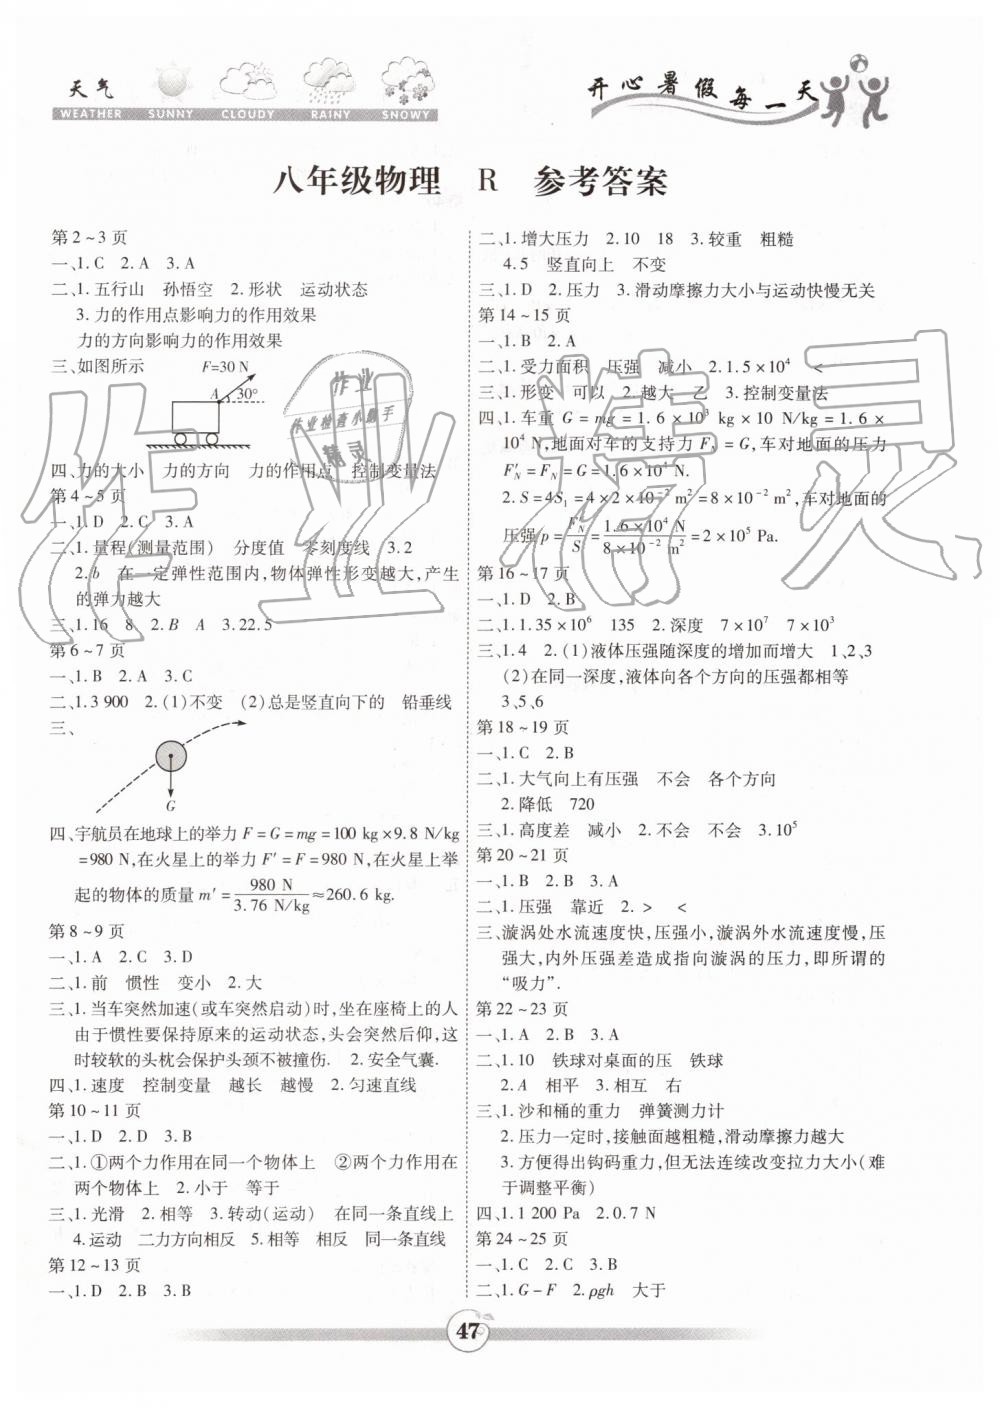 天气
WEATHER SUNNY CLOUDY RAINY SNOWY
开心暑假每一天
八年级物理 R 参考答案
第2~3页
一、1.C 2.A 3.A
二、1.五行山 孙悟空 2.形状 运动状态
3.力的作用点影响力的作用效果
力的方向影响力的作用效果
三、如图所示
F=30 N
A 30°
四、力的大小 力的方向 力的作用点 控制变量法
第4~5页
一、1.D 2.C 3.A
二、1.量程(测量范围) 分度值 零刻度线 3.2
2.b 在一定弹性范围内,物体弹性形变越大,产生
的弹力越大
三、1.16 8 2.B A 3.22.5
第6~7页
一、1.B 2.A 3.C
二、1.3 900 2.(1)不变 (2)总是竖直向下的 铅垂线
三、
G
四、宇航员在地球上的举力 F=G=mg=100 kg×9.8 N/kg
=980 N,在火星上的举力 F′=F=980 N,在火星上举
起的物体的质量 m′=980 N/3.76 N/kg≈260.6 kg.
第8~9页
一、1.A 2.C 3.D
二、1.前 惯性 变小 2.大
三、1.当车突然加速(或车突然启动)时,坐在座椅上的人
由于惯性要保持原来的运动状态,头会突然后仰,这
时较软的头枕会保护头颈不被撞伤. 2.安全气囊.
四、1.速度 控制变量 越长 越慢 2.匀速直线
第10~11页
一、1.D 2.D 3.B
二、1.①两个力作用在同一个物体上 ②两个力作用在
两个物体上 2.小于 等于
三、1.光滑 2.相等 3.转动(运动) 在同一条直线上
4.运动 二力方向相反 5.相等 相反 同一条直线
第12~13页
一、1.D 2.B 3.B
二、1.增大压力 2.10 18 3.较重 粗糙
4.5 竖直向上 不变
三、1.D 2.压力 3.滑动摩擦力大小与运动快慢无关
第14~15页
一、1.B 2.A
二、1.受力面积 压强 减小 2.1.5×10⁴ <
三、1.形变 可以 2.越大 乙 3.控制变量法
四、1.车重 G=mg=1.6×10³ kg×10 N/kg=1.6×
10⁴ N,地面对车的支持力 F_N=G,车对地面的压力
F′_N=F_N=G=1.6×10⁴ N.
2.S=4S₁=4×2×10⁻² m²=8×10⁻² m²,车对地面的
压强 p=F_N/S=1.6×10⁴ N/8×10⁻² m²=2×10⁵ Pa.
第16~17页
一、1.D 2.B
二、1.1.35×10⁶ 135 2.深度 7×10⁷ 7×10³
三、1.4 2.(1)液体压强随深度的增加而增大 1、2、3
(2)在同一深度,液体向各个方向的压强都相等
3、5、6
第18~19页
一、1.C 2.B
二、1.大气向上有压强 不会 各个方向
2.降低 720
三、1.高度差 减小 2.不会 不会 3.10⁵
第20~21页
一、1.B 2.B 3.A
二、1.压强 靠近 2.> <
三、漩涡处水流速度快,压强小,漩涡外水流速度慢,压
强大,内外压强差造成指向漩涡的压力,即所谓的
“吸力”.
第22~23页
一、1.A 2.B 3.A
二、1.10 铁球对桌面的压 铁球
2.A 相平 3.相互 右
三、1.沙和桶的重力 弹簧测力计
2.压力一定时,接触面越粗糙,滑动摩擦力越大
3.方便得出钩码重力,但无法连续改变拉力大小(难
于调整平衡)
四、1.1 200 Pa 2.0.7 N
第24~25页
一、1.C 2.C 3.B
二、1.G-F 2.ρgh 大于
作业
作业检查小能手
精灵
作业精灵
47